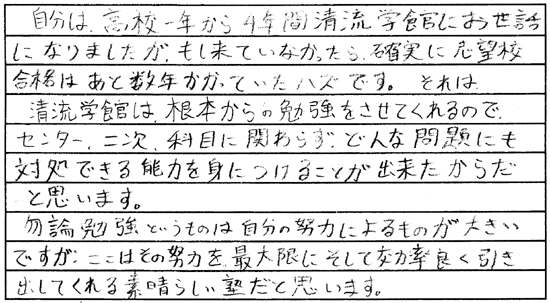 自分は、高校一年から4年間清流学館にお世話
になりましたが、もし来ていなかったら、確実に志望校
合格はあと数年かかっていたハズです。それは
清流学館は、根本からの勉強をさせてくれるので、
センター、二次、科目に関わらず、どんな問題にも
対処できる能力を身につけることが出来たからだ
と思います。
勿論勉強というものは自分の努力によるものが大きい
ですが、ここはその努力を、最大限にそして効率良く引き
出してくれる素晴らしい塾だと思います。